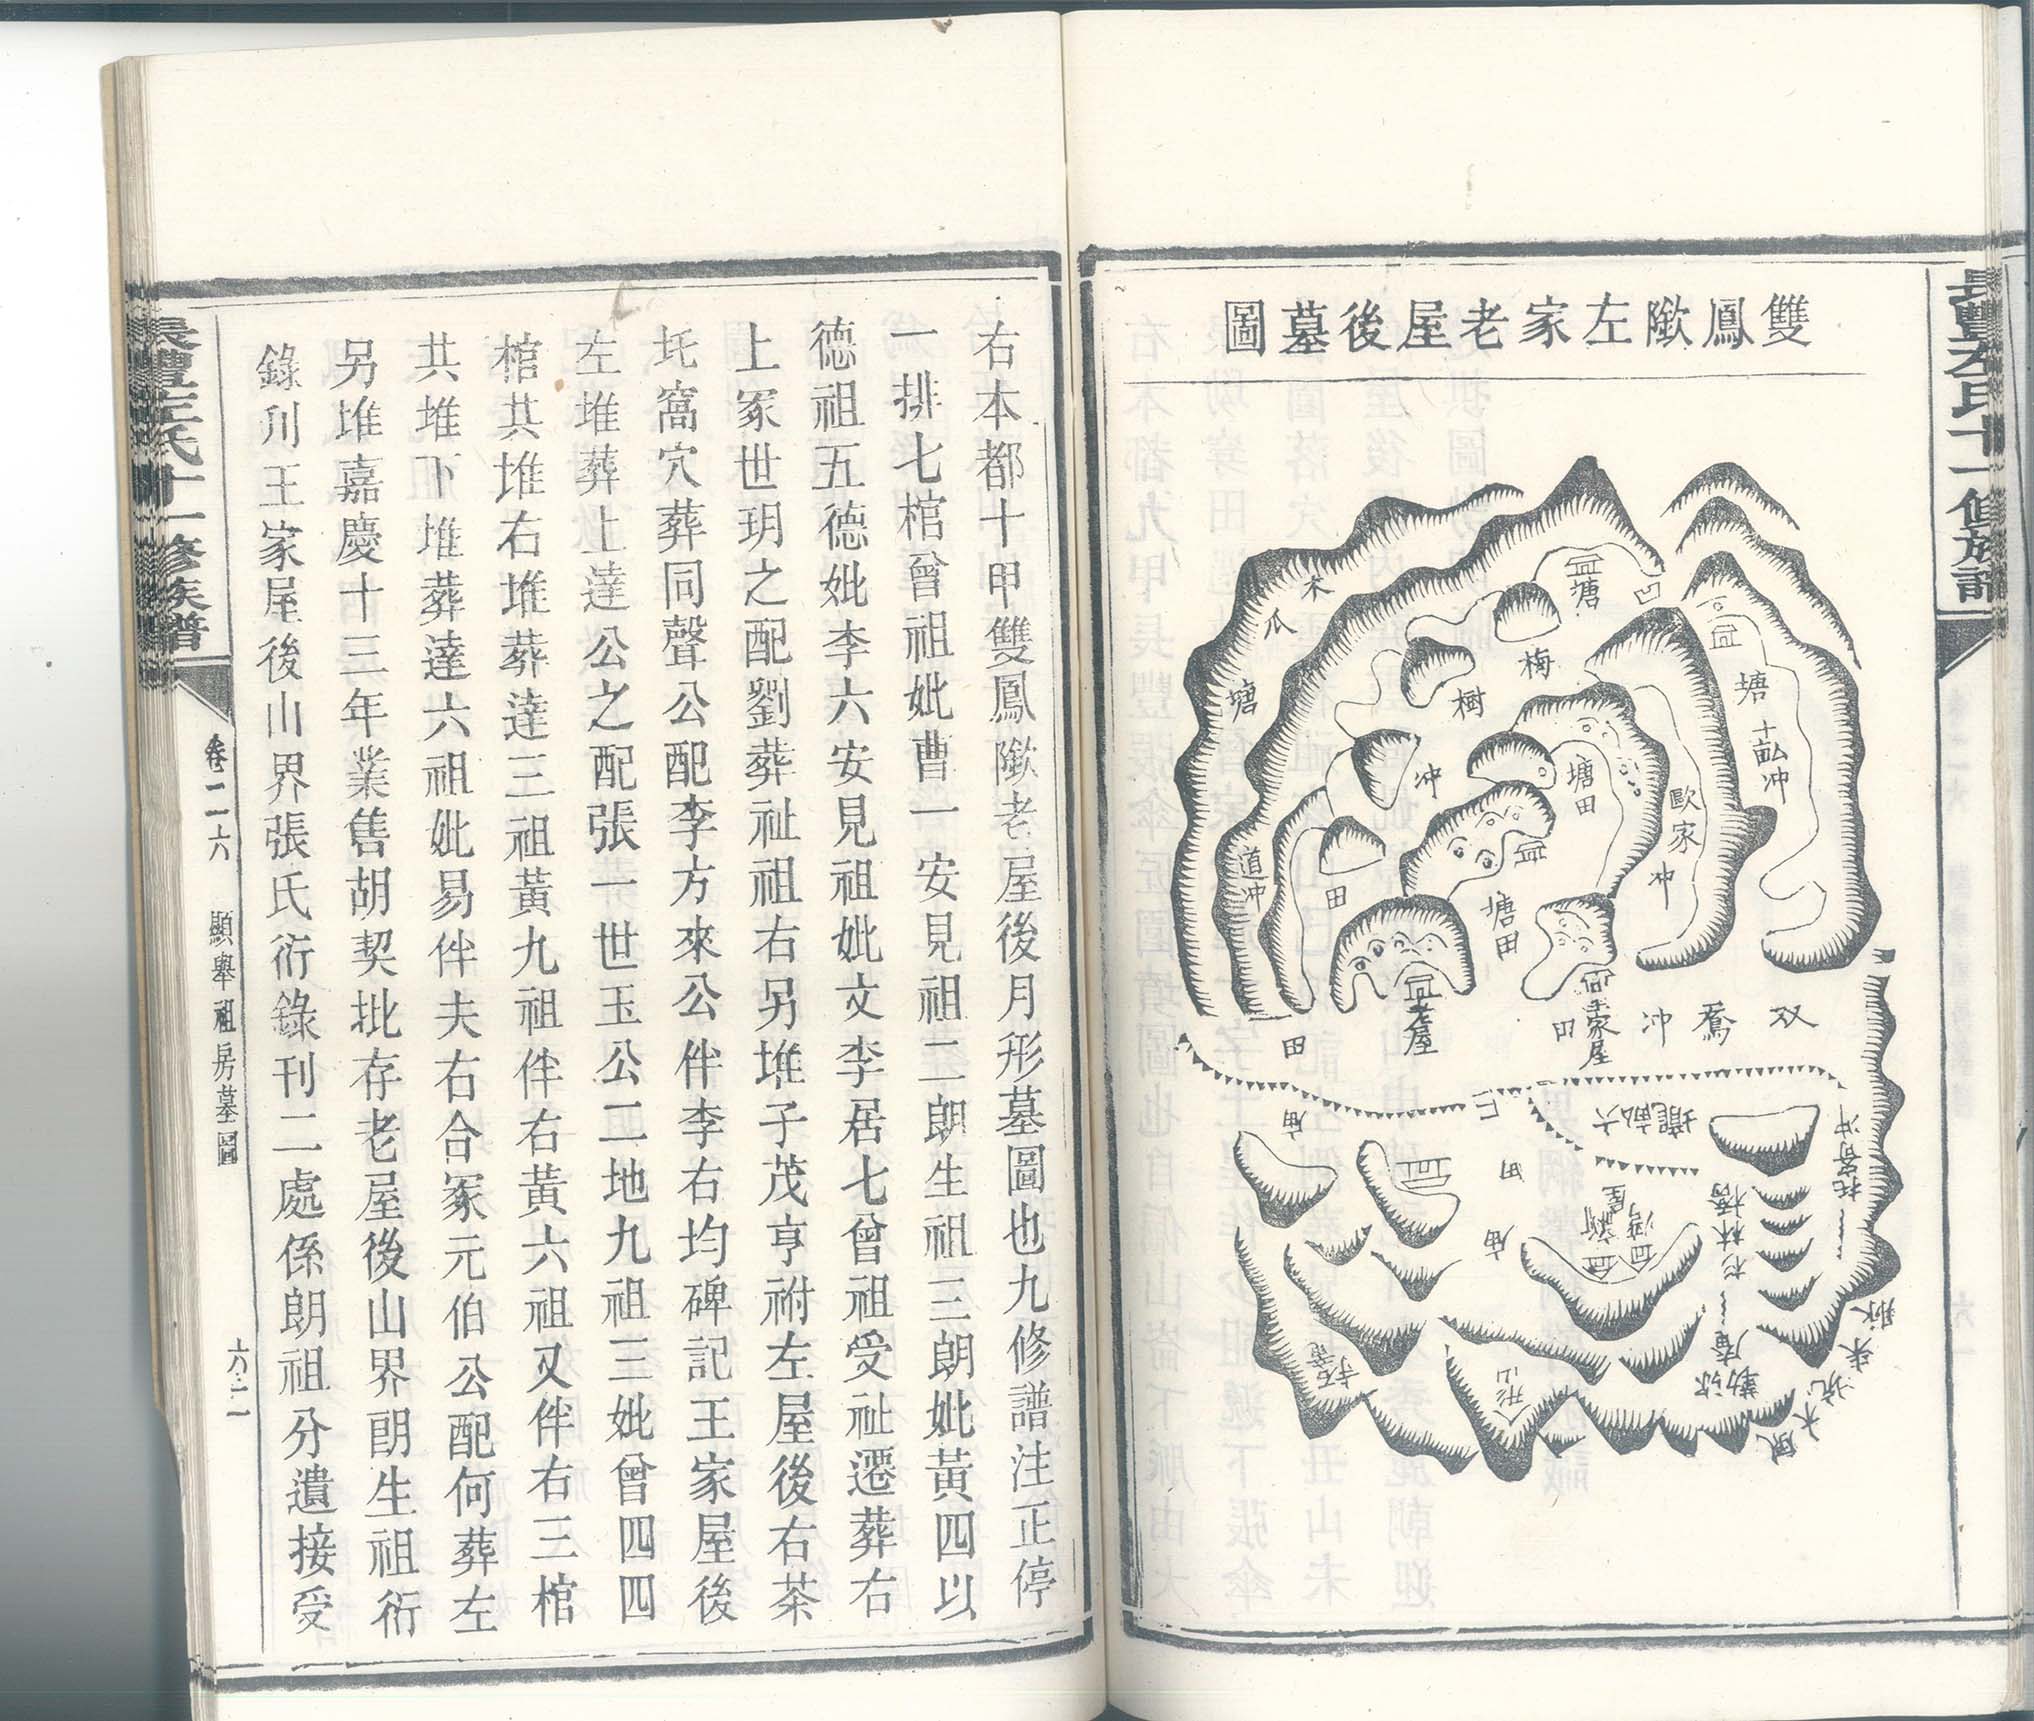 雙鳳歟左家老屋後墓圖
木
瓜
塘
道冲
塘
凹
梅
樹
冲
田
塘
十畝冲
塘田
歐家冲
塘田
老屋
王家屋
田
田
双
鳳
冲
六畝壠
托窩冲
新屋
灣
杉林橋
弥勒庵
人形山
風木坑來脈
右本都十甲雙鳳歟老屋後月形墓圖也九修譜注正停
一排七棺曾祖妣曹一安見祖二朗生祖三朗妣黃四以
德祖五德妣李六安見祖妣文李居七曾祖受祉遷葬右
上冢世玥之配劉葬祉祖右另堆子茂亨祔左屋後右茶
圫窩穴葬同聲公配李方來公伴李右均碑記王家屋後
左堆葬上達公之配張一世玉公二地九祖三妣曾四四
棺共堆右堆葬達三祖黃九祖伴右黃六祖又伴右三棺
共堆下堆葬達六祖妣易伴夫右合冢元伯公配何葬左
另堆嘉慶十三年業售胡契批存老屋後山界朗生祖衍
錄刋王家屋後山界張氏衍錄刊二處係朗祖分遺接受
長豐左氏十一修族譜
卷二六
顯舉祖房墓圖
六二